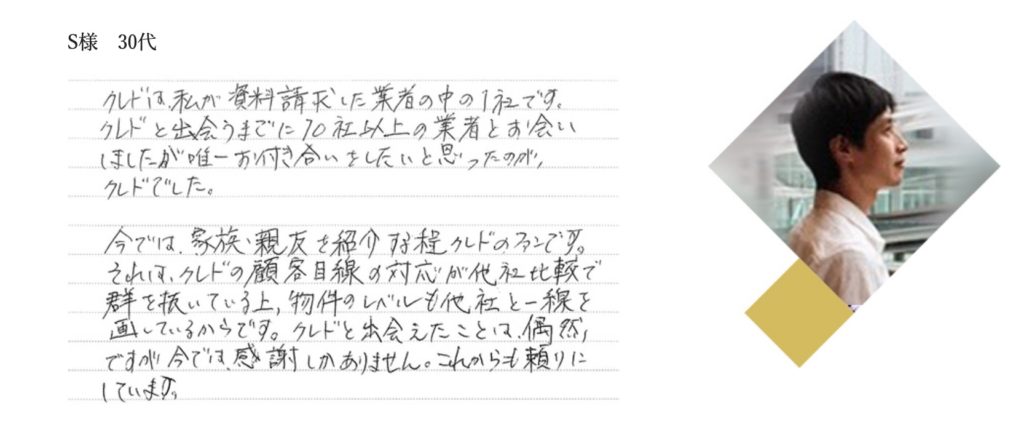 S様　30代
クレドは、私が資料請求した業者の中の1社です。
クレドと出会うまでに10社以上の業者とお会い
しましたが唯一お付き合いをしたいと思ったのが、
クレドでした。
今では、家族・親友を紹介する程クレドのファンです。
それは、クレドの顧客目線の対応が他社比較で
群を抜いている上、物件のレベルも他社と一線を
画しているからです。クレドと出会えたことは、偶然、
ですが今では、感謝しかありません。これからも頼りに
しています。